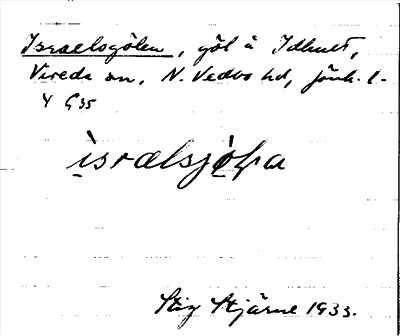 Israelsgölen, göl å Idhult,
Vireda sn, N. Vedbo hd, Jönk. l.
4 G35
israelsjöḷa
Stig Stjärne 1933.